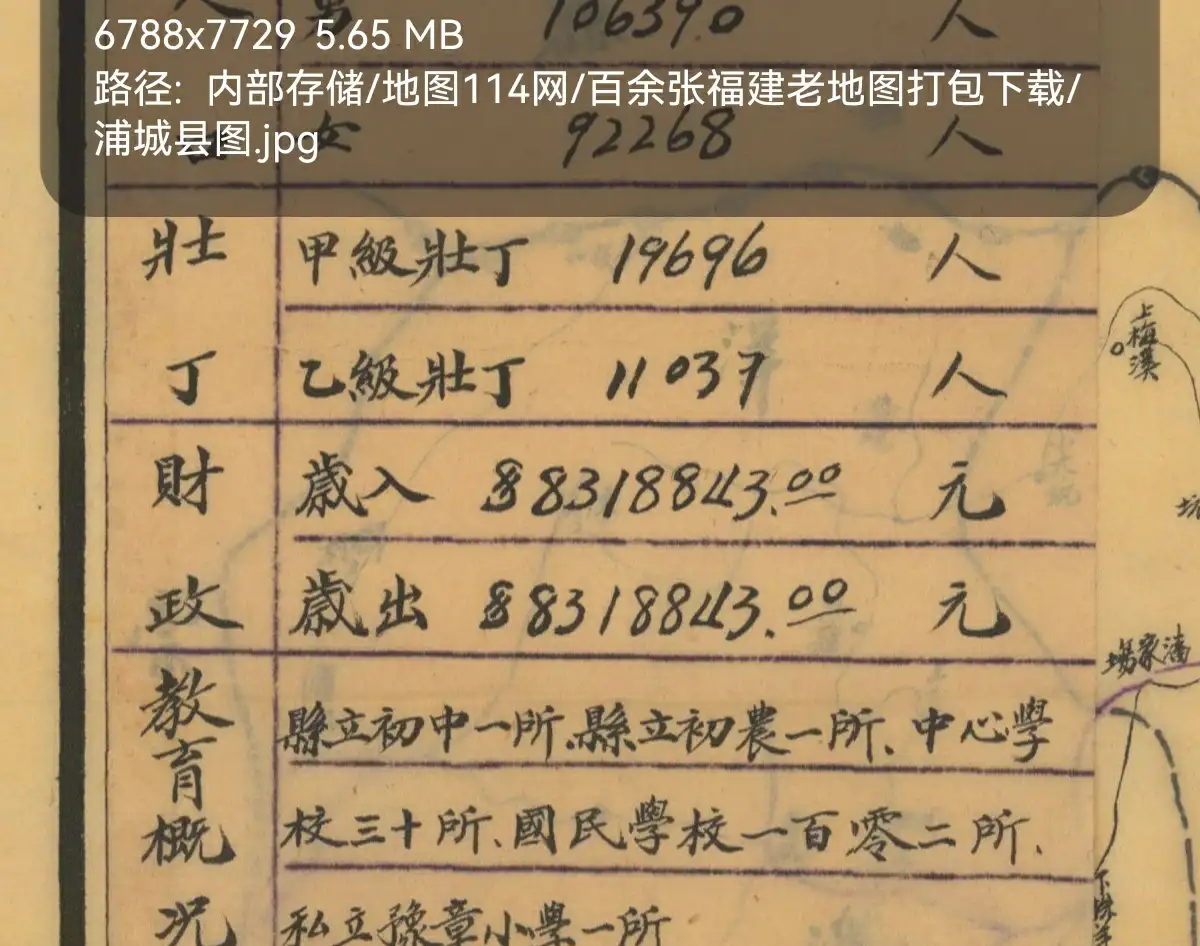 6788x7729 5.65 MB
路径: 内部存储/地图114网/百余张福建老地图打包下载/
浦城县图.jpg
男 106390 人
女 92268 人
壯丁
甲級壯丁 19696 人
乙級壯丁 11037 人
財政
歲入 88318843.00 元
歲出 88318843.00 元
教育概況
縣立初中一所、縣立初農一所、中心學
校三十所、國民學校一百零二所、
私立豫章小學一所
上梅溪
潘家場
坑